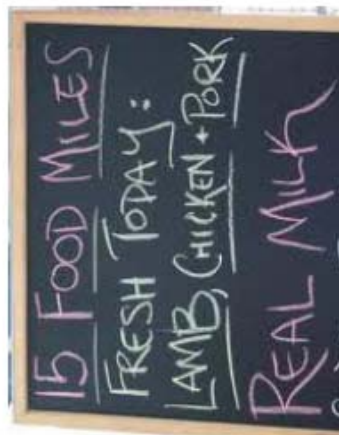 15 FOOD MILES
FRESH TODAY:
LAMB, CHICKEN + PORK
REAL MILK